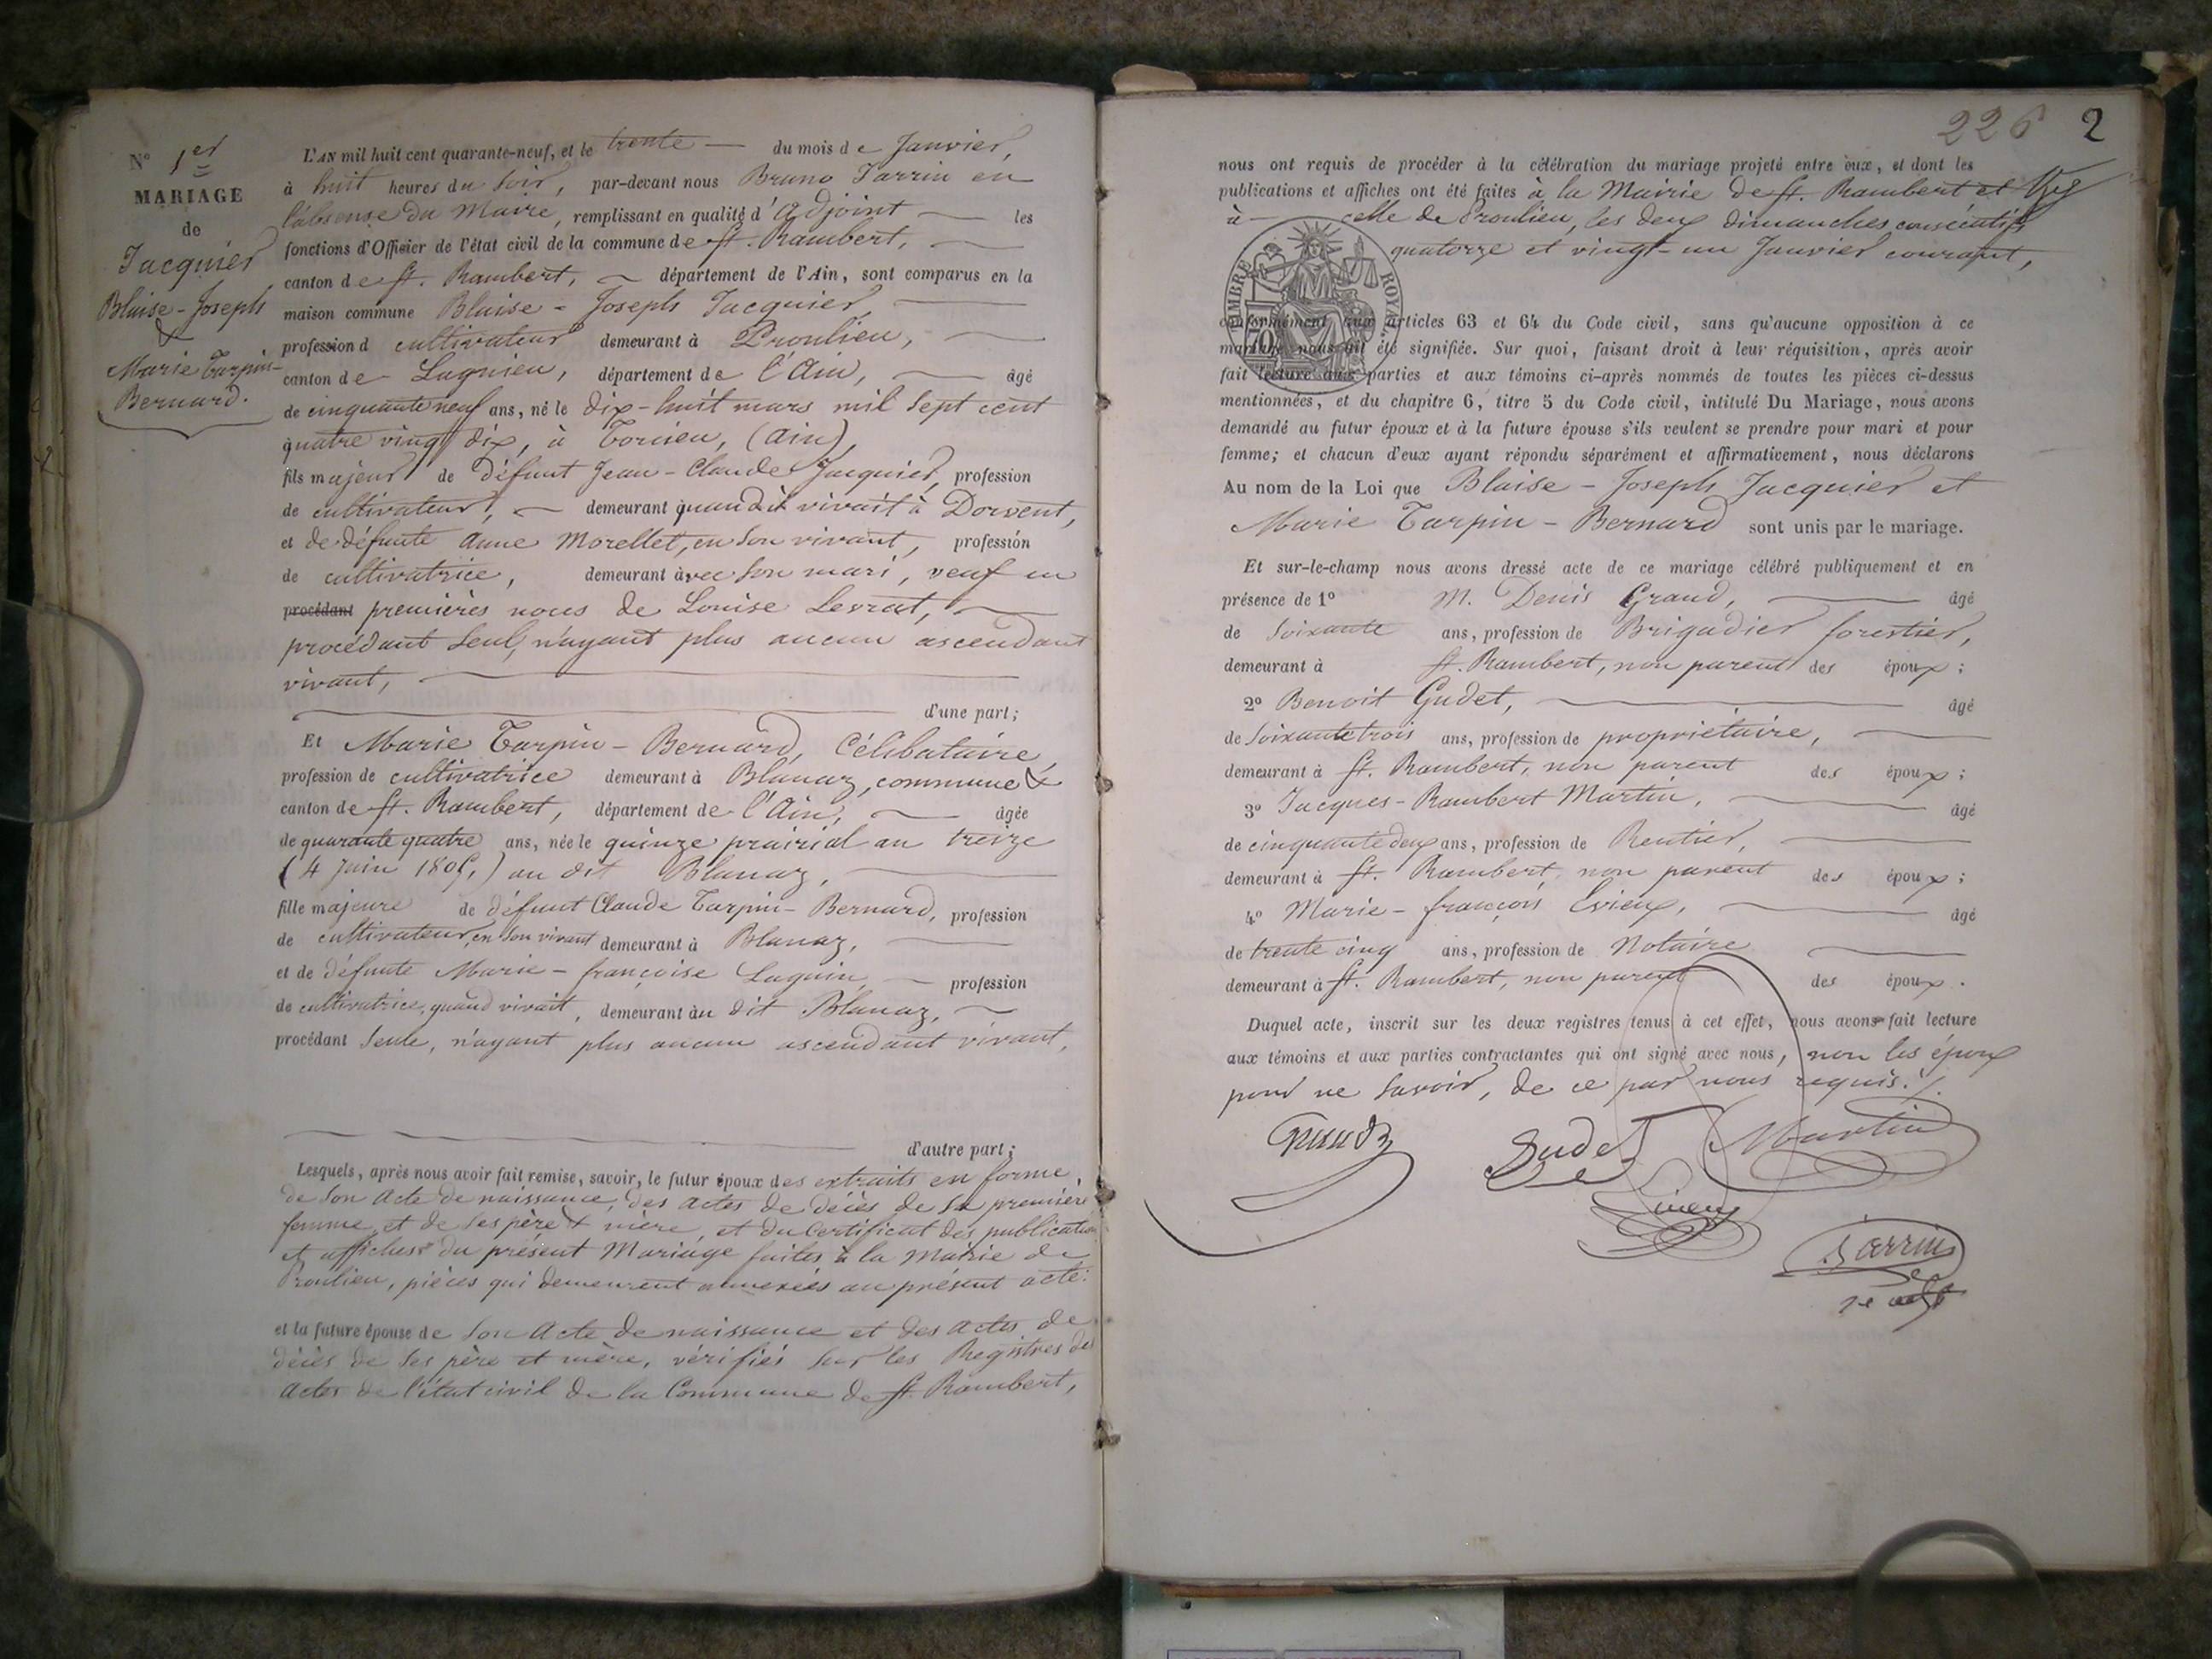 N° 1er
MARIAGE
de
Jacquier
Blaise-Joseph
&
Marie Tarpin-
Bernard.
L'AN mil huit cent quarante-neuf, et le trente du mois de Janvier,
à huit heures du Soir, par-devant nous Bruno Sarrin en
l'absense du Maire, remplissant en qualité d'adjoint les
fonctions d'Officier de l'état civil de la commune de St. Rambert,
canton de St. Rambert, département de l'Ain, sont comparus en la
maison commune Blaise-Joseph Jacquier,
profession d cultivateur demeurant à Proulieu,
canton de Lagnieu, département de l'Ain, âgé
de cinquante neuf ans, né le dix-huit mars mil sept cent
quatre vingt dix, à Torcieu, (Ain),
fils majeur de défunt Jean-Claude Jacquier, profession
de cultivateur, demeurant quand il vivait à Dorvent,
et de défunte Anne Morellet, en son vivant, profession
de cultivatrice, demeurant avec son mari, veuf en
procédant premières noces de Louise Levrat,
procédant seul, n'ayant plus aucun ascendant
vivant,
d'une part;
Et Marie Tarpin-Bernard, Célibataire,
profession de cultivatrice demeurant à Blanaz, commune &
canton de St. Rambert, département de l'Ain, âgée
de quarante quatre ans, née le quinze prairial an treize
(4 Juin 1805,) au dit Blanaz,
fille majeure de défunt Claude Tarpin-Bernard, profession
de cultivateur, en son vivant demeurant à Blanaz,
et de défunte Marie-françoise Laguin, profession
de cultivatrice, quand vivait, demeurant au dit Blanaz,
procédant Seule, n'ayant plus aucun ascendant vivant,
d'autre part;
Lesquels, après nous avoir fait remise, savoir, le futur époux des extraits en forme
de son acte de naissance, des actes de décès de sa première
femme et de ses père & mère, et du certificat des publications
et affiches du présent Mariage faites à la Mairie de
Proulieu, pièces qui demeurent annexées au présent acte:
et la future épouse de son acte de naissance et des actes de
décès de ses père et mère, vérifiés sur les Registres des
actes de l'état civil de la Commune de St. Rambert,
226 2
nous ont requis de procéder à la célébration du mariage projeté entre eux, et dont les
publications et affiches ont été faites à la Mairie de St. Rambert et
à celle de Proulieu, les deux dimanches consécutifs
quatorze et vingt-un Janvier courant,
TIMBRE ROYAL
70
conformément aux articles 63 et 64 du Code civil, sans qu'aucune opposition à ce
mariage nous ait été signifiée. Sur quoi, faisant droit à leur réquisition, après avoir
fait lecture aux parties et aux témoins ci-après nommés de toutes les pièces ci-dessus
mentionnées, et du chapitre 6, titre 5 du Code civil, intitulé Du Mariage, nous avons
demandé au futur époux et à la future épouse s'ils veulent se prendre pour mari et pour
femme; et chacun d'eux ayant répondu séparément et affirmativement, nous déclarons
Au nom de la Loi que Blaise-Joseph Jacquier et
Marie Tarpin-Bernard sont unis par le mariage.
Et sur-le-champ nous avons dressé acte de ce mariage célébré publiquement et en
présence de 1° M. Denis Grand, âgé
de Soixante ans, profession de Brigadier forestier,
demeurant à St. Rambert, non parent des époux;
2° Benoit Gudet, âgé
de Soixante trois ans, profession de propriétaire,
demeurant à St. Rambert, non parent des époux;
3° Jacques-Rambert Martin, âgé
de cinquante deux ans, profession de Rentier,
demeurant à St. Rambert, non parent des époux;
4° Marie-françois Evieux, âgé
de trente cinq ans, profession de Notaire
demeurant à St. Rambert, non parent des époux.
Duquel acte, inscrit sur les deux registres tenus à cet effet, nous avons fait lecture
aux témoins et aux parties contractantes qui ont signé avec nous, non les époux
pour ne savoir, de ce par nous requis./.
Grand Gudet Martin
Evieux
Sarrin